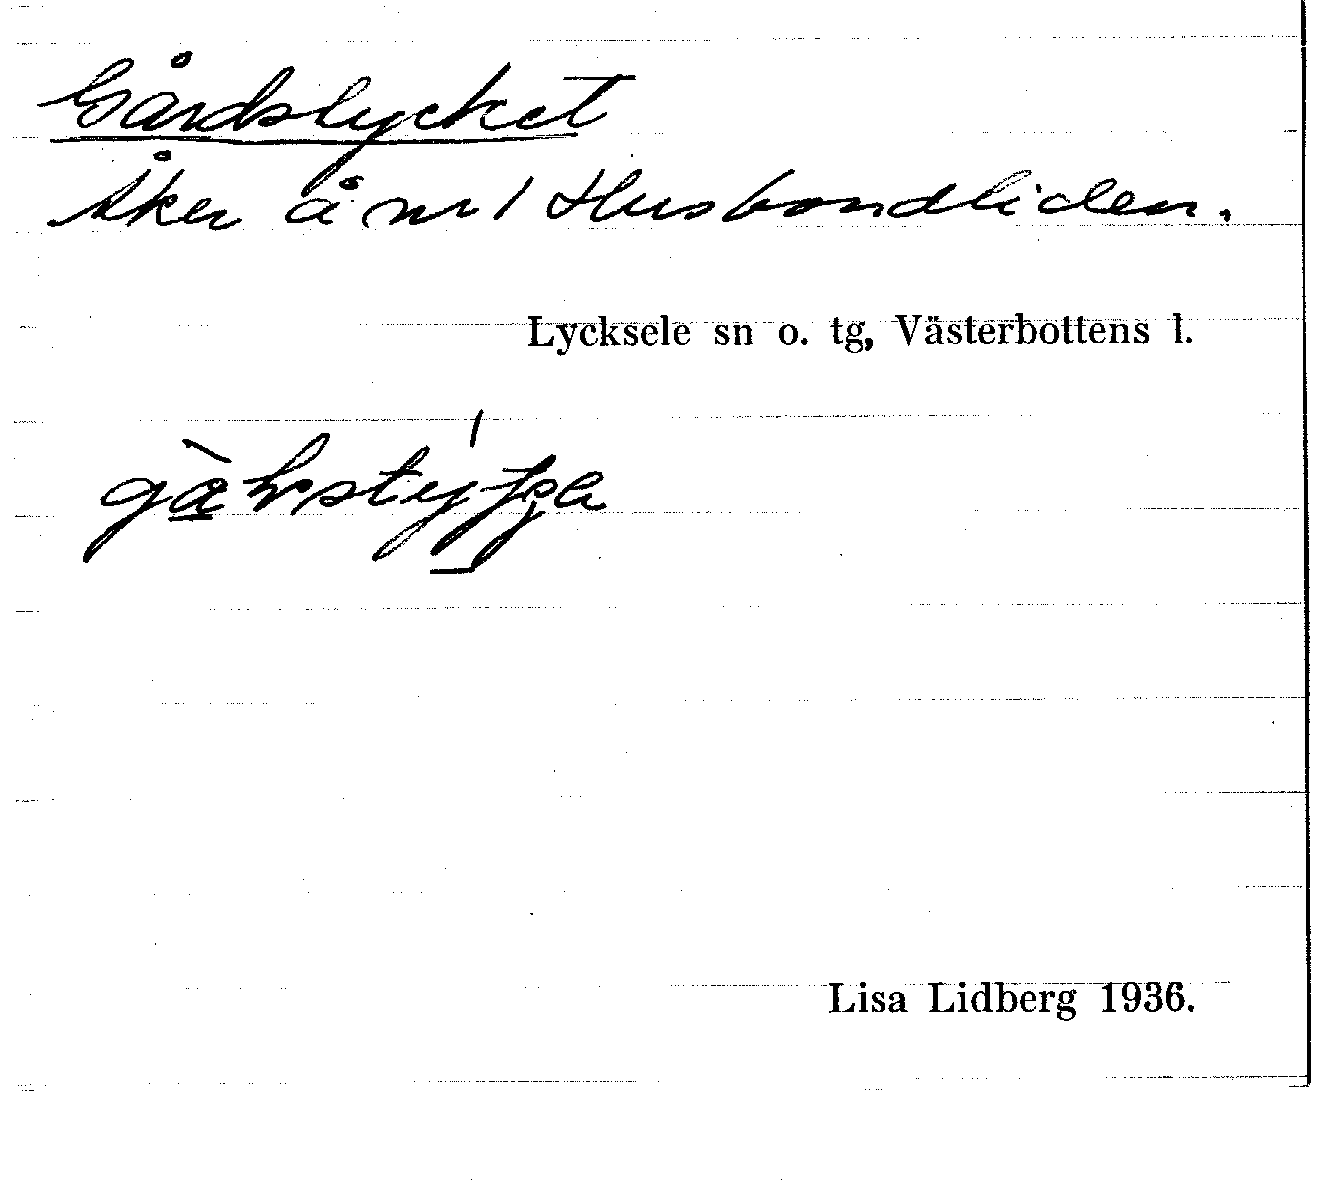 Gårdslycket
Åker å nr 1 Husbondliden.
Lycksele sn o. tg, Västerbottens l.
Lisa Lidberg 1936.